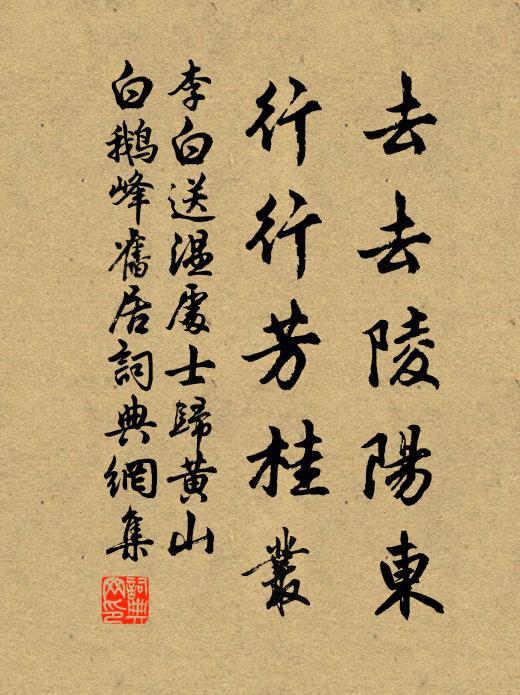 去去陵陽東
行行芳桂叢
李白送溫處士歸黃山
白鵝峰舊居詞典網集
詞典網印